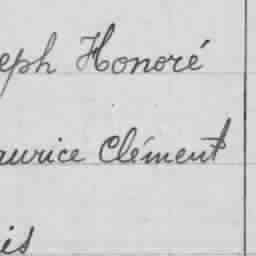 eph Honoré
aurice Clément
is